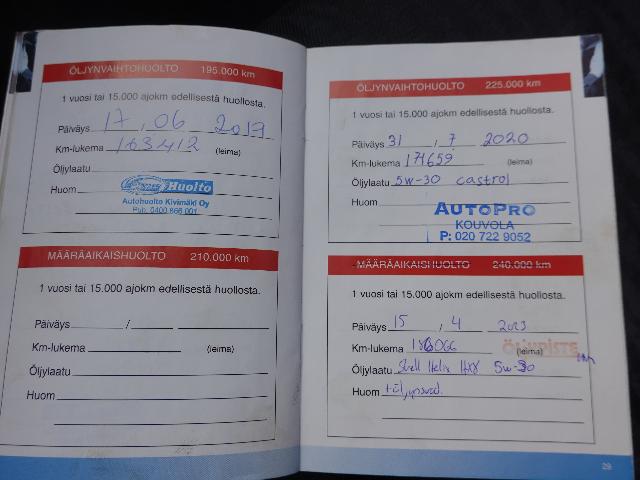 ÖLJYNVAIHTOHUOLTO 195.000 km
1 vuosi tai 15.000 ajokm edellisestä huollosta.
Päiväys 17 . 06 2017
Km-lukema 163412 (leima)
Öljylaatu
Huom Huolto
Autohuolto Kivimäki Oy
Puh. 0400 866 001
MÄÄRÄAIKAISHUOLTO 210.000 km
1 vuosi tai 15.000 ajokm edellisestä huollosta.
Päiväys /
Km-lukema (leima)
Öljylaatu
Huom
ÖLJYNVAIHTOHUOLTO 225.000 km
1 vuosi tai 15.000 ajokm edellisestä huollosta.
Päiväys 31 / 7 2020
Km-lukema 171659 (leima)
Öljylaatu 5w-30 castrol
Huom
AUTOPRO
KOUVOLA
P: 020 722 9052
MÄÄRÄAIKAISHUOLTO 240.000 km
1 vuosi tai 15.000 ajokm edellisestä huollosta.
Päiväys 15 / 4 2023
Km-lukema 186066 (leima)
ÖLJYPISTE
Öljylaatu Shell Helix HX8 5w-30
Huom
29